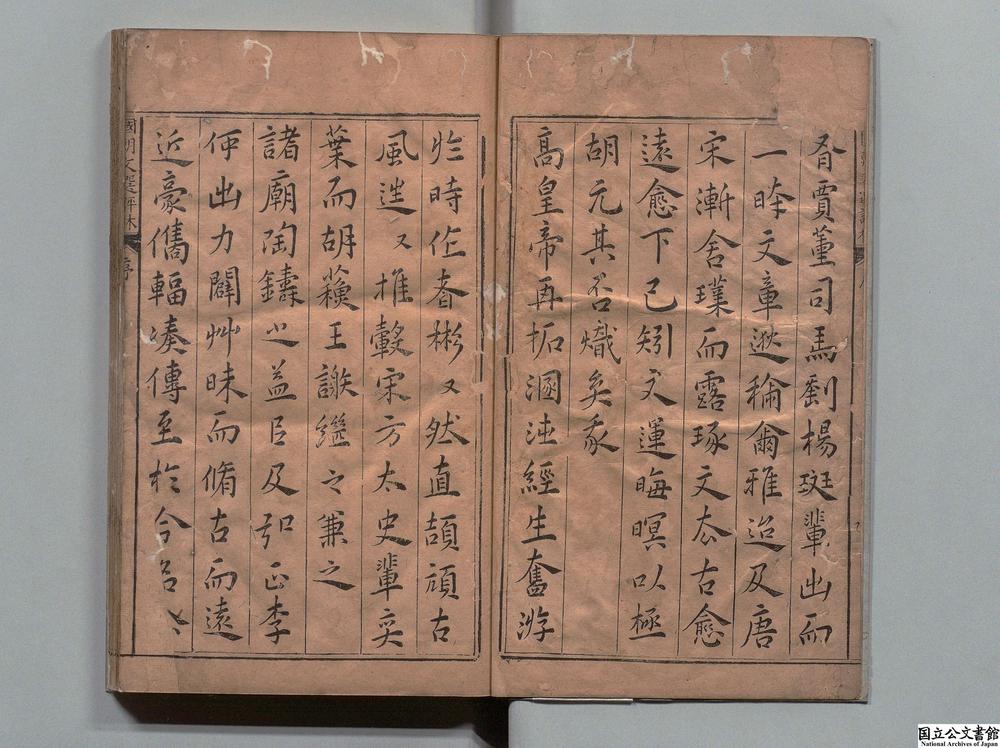 胥賈董司馬劉楊班輩出而
一時文章遂稱爾雅迨及唐
宋漸舍璞而露琢文太古愈
遠愈下已矧文運晦暝以極
胡元其否熾矣我
高皇帝再拓溷沌經生奮游
於時作者彬又然直頡頏古
風迨又推轂宋方太史輩奕
葉而胡蘓王謝繼之兼之
諸廟陶鑄之益臣及弘正李
何出力闢艸昧而脩古而遠
近豪儁輻湊傳至於今
國朝文選評林
序
国立公文書館
National Archives of Japan